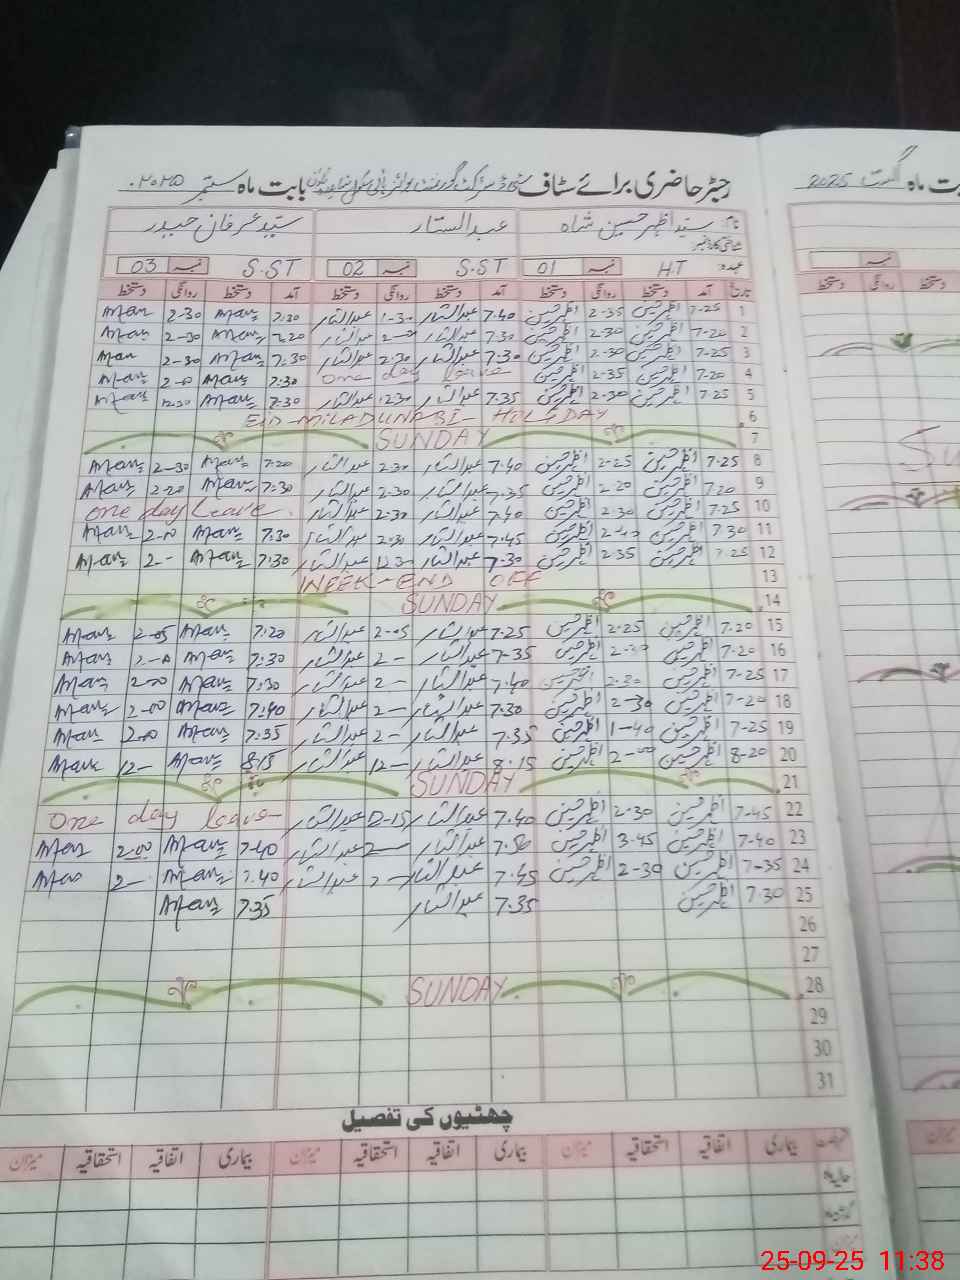 رجسٹر حاضری برائے سٹاف گورنمنٹ بوائز ہائی سکول بابت ماہ ستمبر ۲۰۲۵
نام: سید اظہر حسین شاہ عبدالستار سید عرفان حیدر
عہدہ: H.T نمبر 01 S.ST نمبر 02 S.ST نمبر 03
تاریخ آمد دستخط روانگی دستخط آمد دستخط روانگی دستخط آمد دستخط روانگی دستخط
1 7-25 اظہر حسین 2-35 اظہر حسین 7.40 عبدالستار 1-30 عبدالستار 7:30 2-30
2 7-20 اظہر حسین 2-30 اظہر حسین 7.30 عبدالستار عبدالستار 7.20 2-30
3 7-25 اظہر حسین 2-30 اظہر حسین 7.30 عبدالستار 2.30 عبدالستار 7.30 2-30
4 7-20 اظہر حسین 2-35 اظہر حسین one day leave 7:30
5 7-25 اظہر حسین 2-30 اظہر حسین 7.35 عبدالستار 12.30 عبدالستار 7.30 12.30
6 EID-MILADUNABI HOLIDAY
7 SUNDAY
8 7-25 اظہر حسین 2-25 اظہر حسین 7.40 عبدالستار 2.30 عبدالستار 7.20 2-30
9 7-20 اظہر حسین 2-20 اظہر حسین 7.35 عبدالستار 2.30 عبدالستار 7:30 2-20
10 7-25 اظہر حسین 2-30 اظہر حسین 7.40 عبدالستار 2.30 عبدالستار one day leave
11 7-30 اظہر حسین 2-40 اظہر حسین 7.45 عبدالستار 2.30 عبدالستار 7:30 2-00
12 7-25 اظہر حسین 2-35 اظہر حسین 7-30 عبدالستار 12.30 عبدالستار 7:30 2-
13 WEEK-END OFF
14 SUNDAY
15 7-20 اظہر حسین 2-25 اظہر حسین 7.25 عبدالستار 2-05 عبدالستار 7:20 2-05
16 7-20 اظہر حسین 2-30 اظہر حسین 7-35 عبدالستار 2- عبدالستار 7:30
17 7-25 اظہر حسین 2-30 اظہر حسین 7.40 عبدالستار 2- عبدالستار 7:30 2-00
18 7-20 اظہر حسین 2-30 اظہر حسین 7.30 عبدالستار 2- عبدالستار 7:40 2-00
19 7-25 اظہر حسین 1-40 اظہر حسین 7.35 عبدالستار 2- عبدالستار 7:35 2-00
20 8-20 اظہر حسین 2-00 اظہر حسین 8.15 عبدالستار 12- عبدالستار 8:15 12-
21 SUNDAY
22 7-45 اظہر حسین 2-30 اظہر حسین 7.40 عبدالستار 12-15 عبدالستار one day leave
23 7-40 اظہر حسین 3-45 اظہر حسین 7.50 عبدالستار 2- عبدالستار 7-40 2-00
24 7-35 اظہر حسین 2-30 اظہر حسین 7.45 عبدالستار 2- عبدالستار 7.40 2-
25 7.30 اظہر حسین 7.35 عبدالستار 7:35
26
27
28 SUNDAY
29
30
31
چھٹیوں کی تفصیل
بیماری اتفاقیہ استحقاقیہ میزان بیماری اتفاقیہ استحقاقیہ میزان بیماری اتفاقیہ استحقاقیہ میزان
حالیہ ماہ
گذشتہ ماہ
میزان
ماہ اگست 2025
نمبر
دستخط روانگی دستخط
میزان
25-09-25 11:38